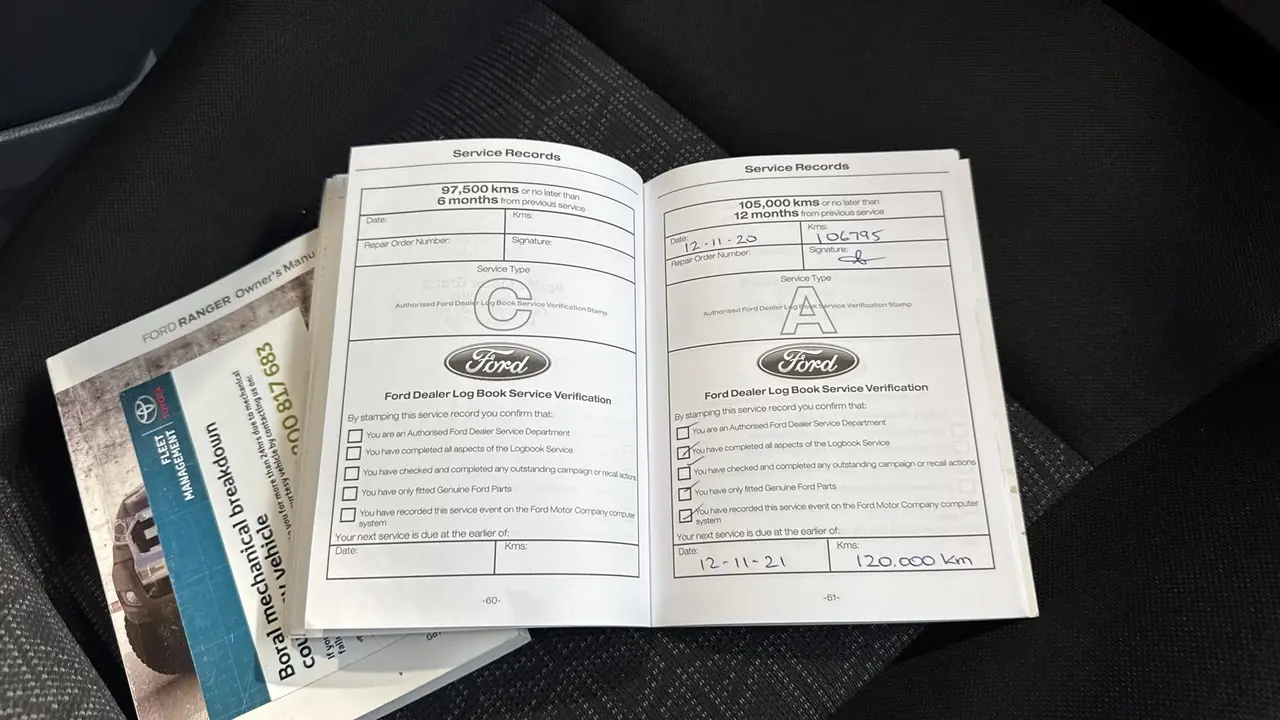 Service Records
97,500 kms or no later than
6 months from previous service
Date:
Kms:
Repair Order Number:
Signature:
Service Type
C
Authorised Ford Dealer Log Book Service Verification Stamp
Ford
Ford Dealer Log Book Service Verification
By stamping this service record you confirm that:
You are an Authorised Ford Dealer Service Department
You have completed all aspects of the Logbook Service
You have checked and completed any outstanding campaign or recall actions
You have only fitted Genuine Ford Parts
You have recorded this service event on the Ford Motor Company computer
system
Your next service is due at the earlier of:
Date:
Kms:
-60-
Service Records
105,000 kms or no later than
12 months from previous service
Date: 12-11-20
Kms: 106795
Repair Order Number:
Signature:
Service Type
A
Authorised Ford Dealer Log Book Service Verification Stamp
Ford
Ford Dealer Log Book Service Verification
By stamping this service record you confirm that:
You are an Authorised Ford Dealer Service Department
You have completed all aspects of the Logbook Service
You have checked and completed any outstanding campaign or recall actions
You have only fitted Genuine Ford Parts
You have recorded this service event on the Ford Motor Company computer
system
Your next service is due at the earlier of:
Date: 12-11-21
Kms: 120.000 km
-61-
FORD RANGER Owner's Manu
TOYOTA
FLEET
MANAGEMENT
00 817 683
more than 24hrs due to mechanical
courtesy vehicle by contacting us on:
Boral mechanical breakdown
vehicle